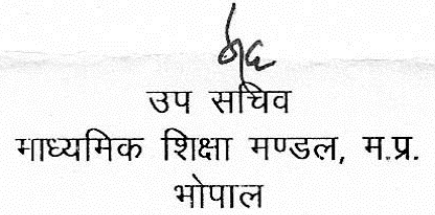 उप सचिव
माध्यमिक शिक्षा मण्डल, म.प्र.
भोपाल